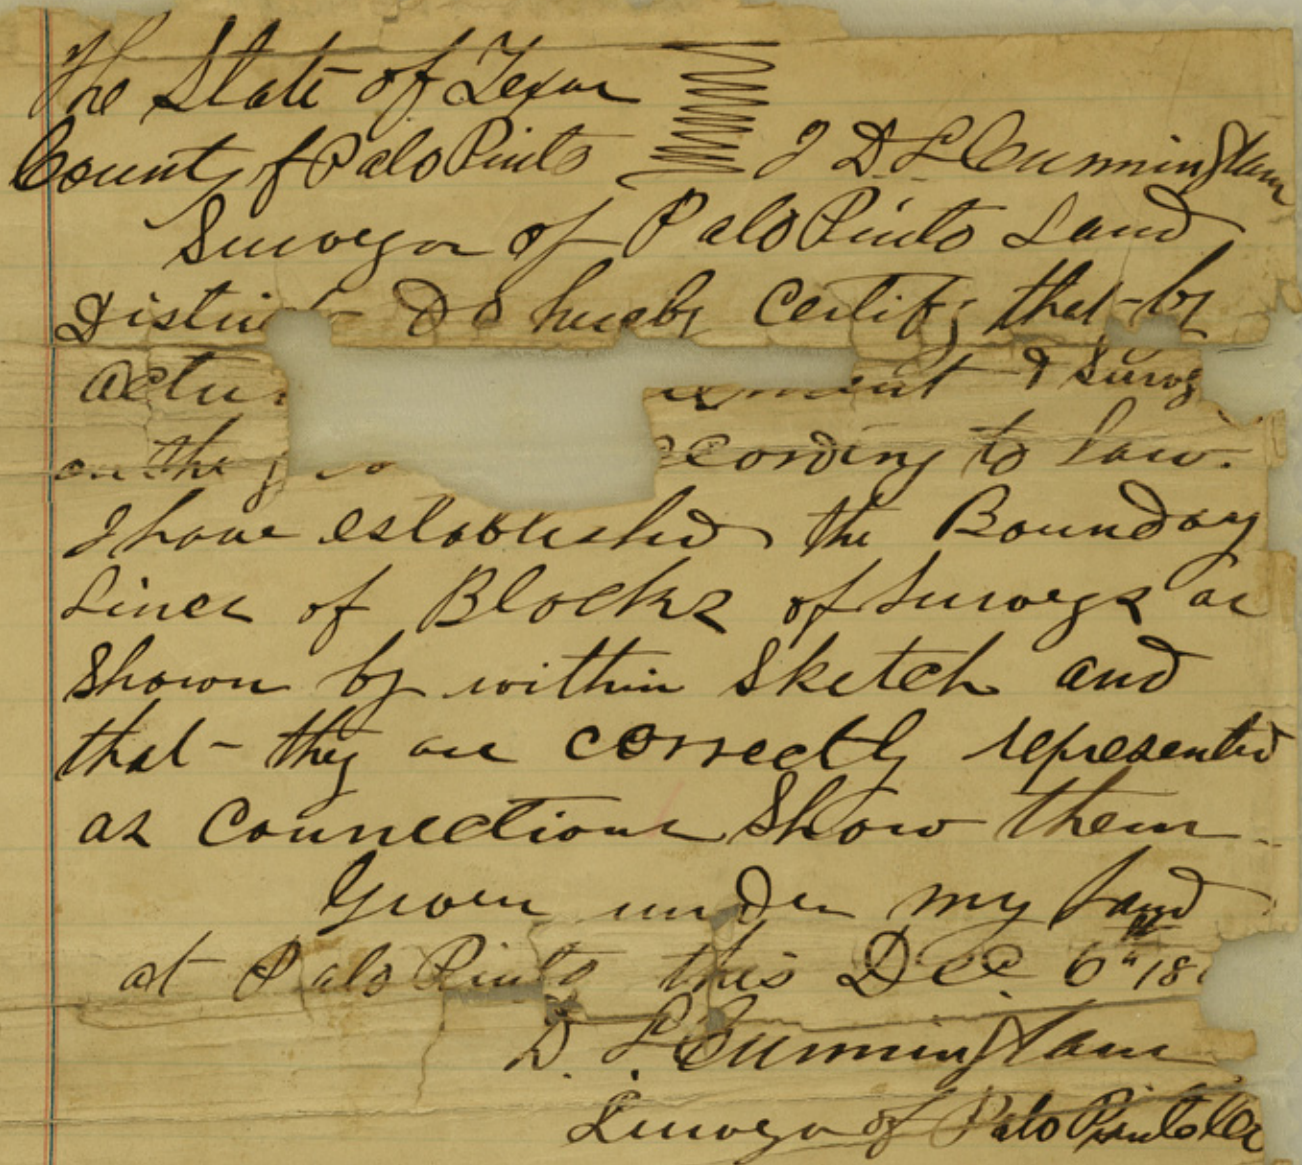 The State of Texas
County of Palo Pinto I D. L. Cunningham
Surveyor of Palo Pinto Land
District do hereby certify that by
& Survey
on the according to law.
I have established the Boundary
Lines of Blocks of Surveys as
shown by within sketch and
that they are correctly represented
as connections show them.
Given under my hand
at Palo Pinto this Dec. 6th 18
D. L. Cunningham
Surveyor of Palo Pinto Co